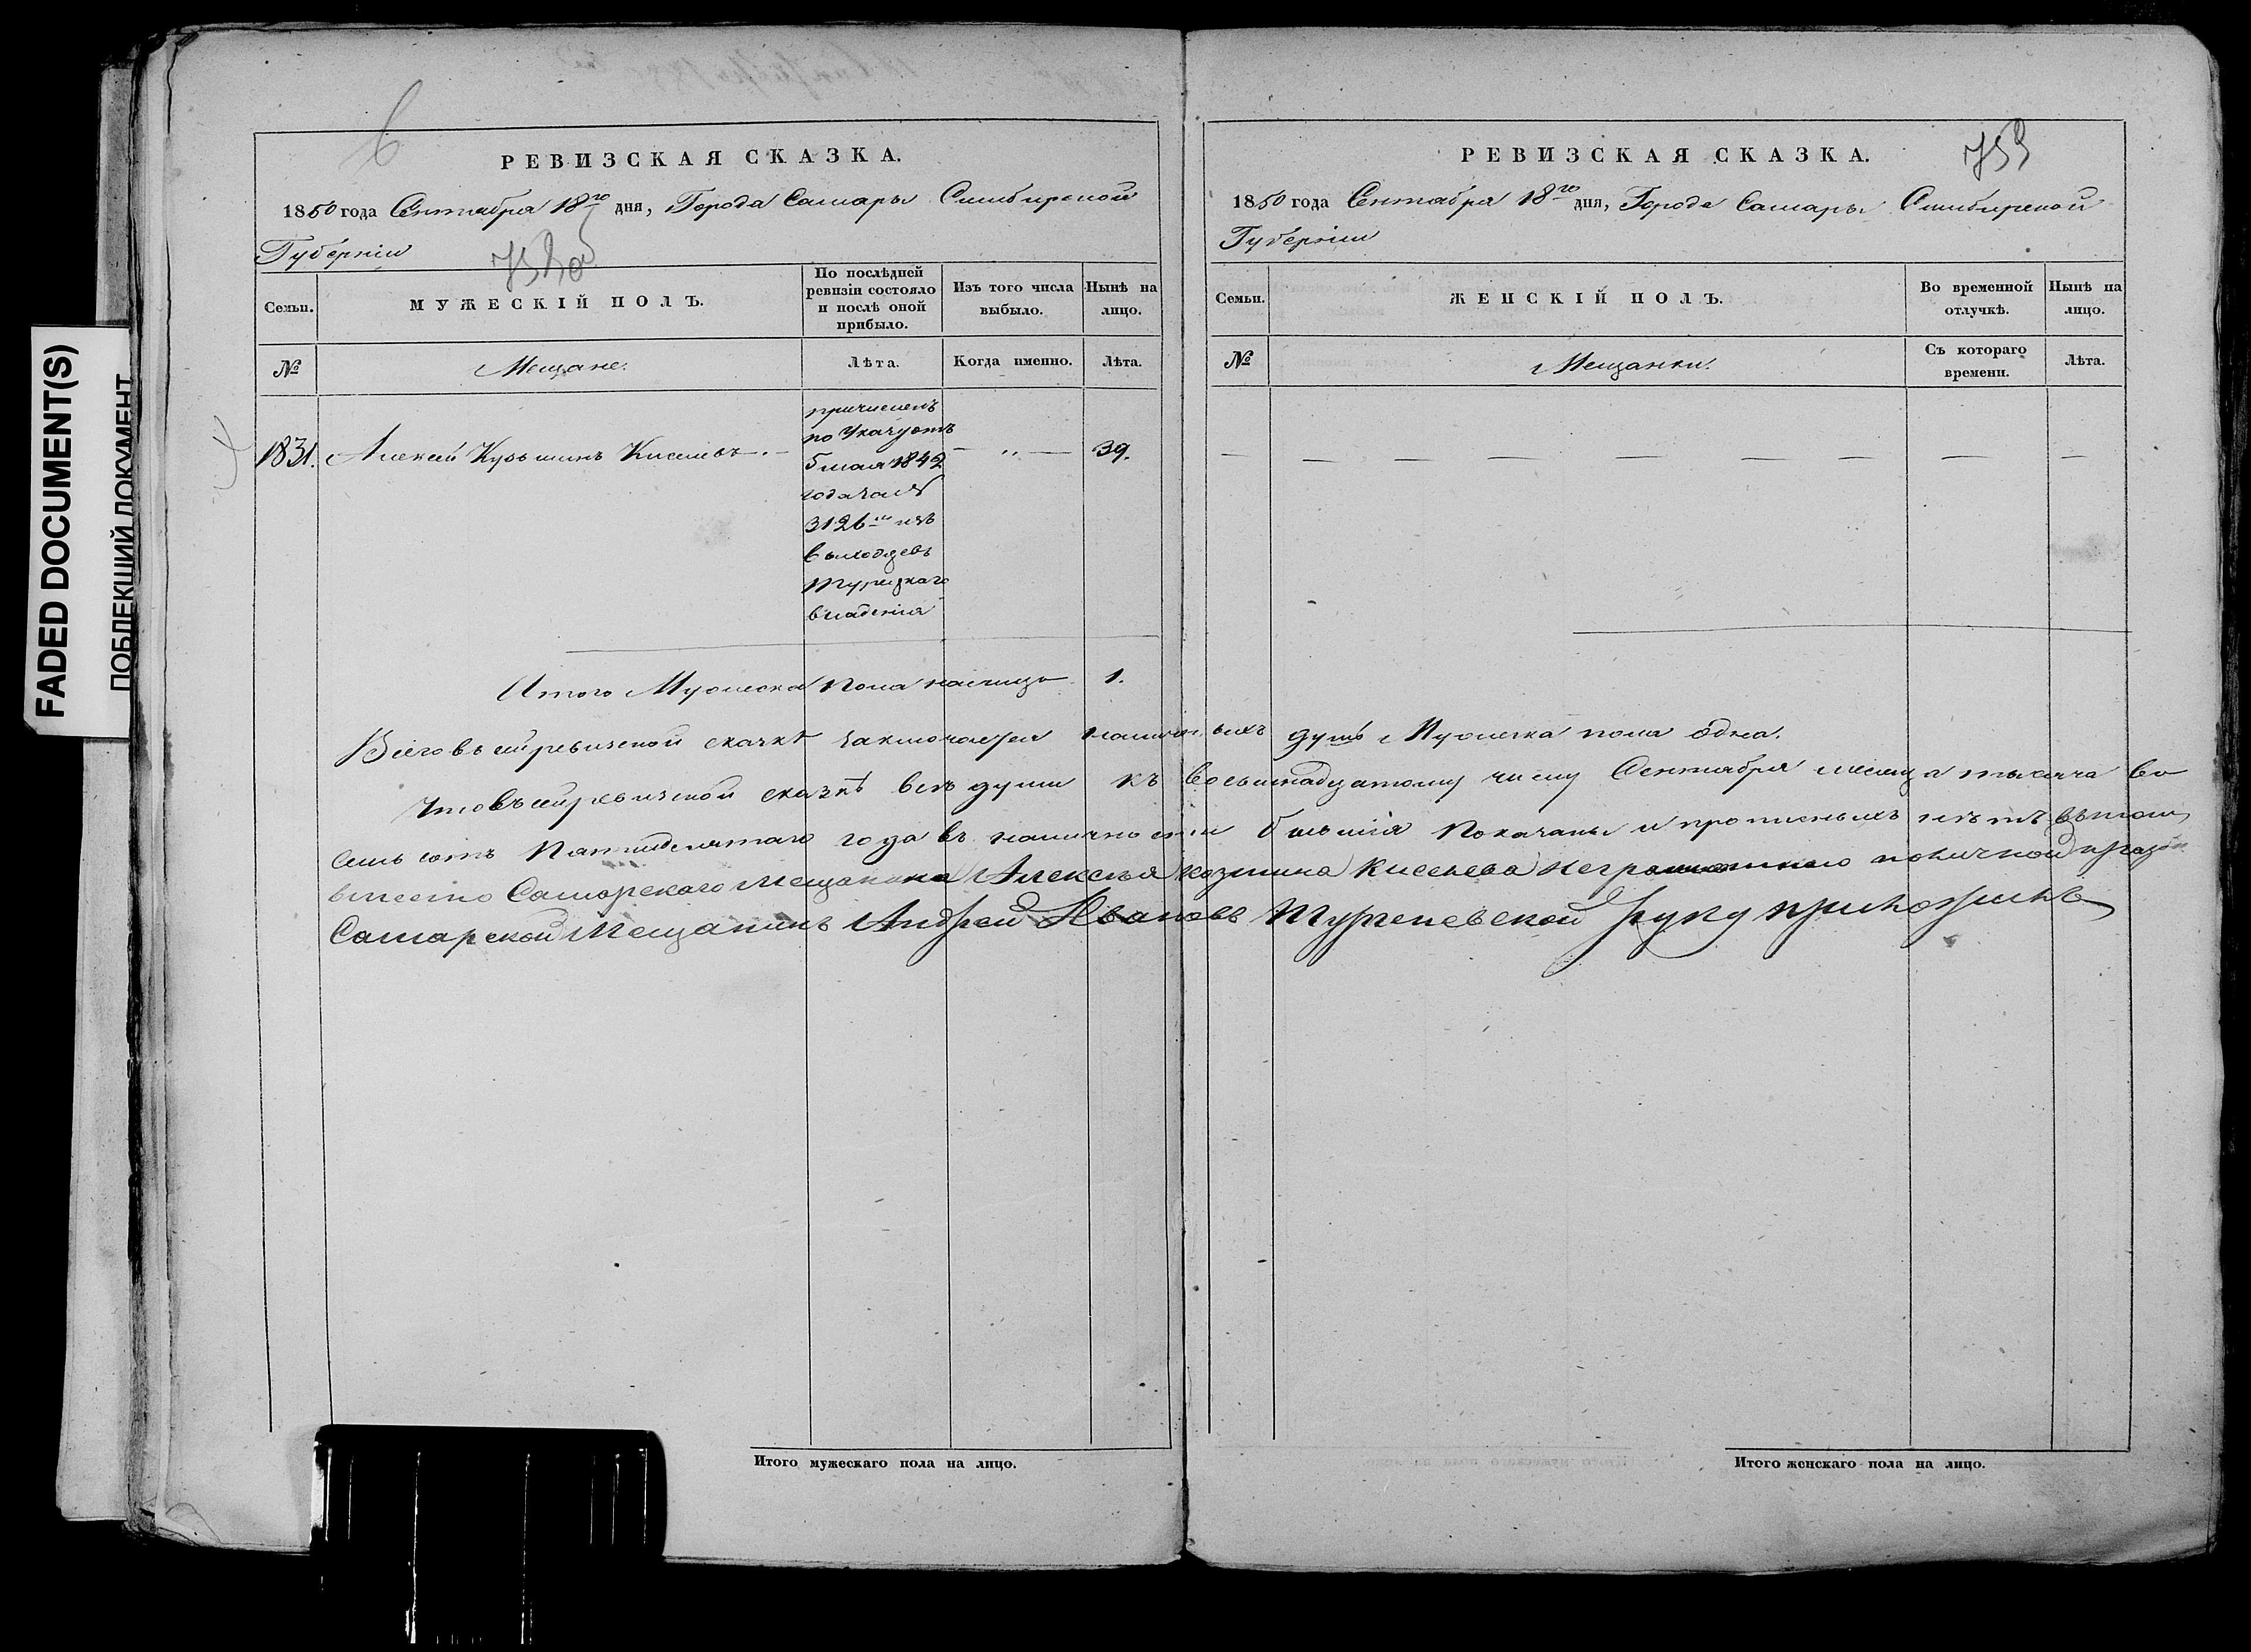 FADED DOCUMENT(S)
ПОБЛЕКШИЙ ДОКУМЕНТ
РЕВИЗСКАЯ СКАЗКА.
1850 года Сентября 18го дня, Города Самары Симбирской
Губерніи
Семьи.
МУЖЕСКІЙ ПОЛЪ.
По послѣдней ревизіи состояло и послѣ оной прибыло.
Изъ того числа выбыло.
Нынѣ на лицо.
№
Мещане.
Лѣта.
Когда именно.
Лѣта.
1831. Алексей Кузьминъ Киселевъ. — „ — 39.
причисленъ
по Указу
5 мая 1842
года за №
3126 изъ
выходцевъ
Турецкаго
владенія
Итого Мужеска пола налицо 1.
Итого мужескаго пола на лицо.
РЕВИЗСКАЯ СКАЗКА.
753
1850 года Сентября 18го дня, Города Самары Симбирской
Губерніи
Семьи.
ЖЕНСКІЙ ПОЛЪ.
Во временной отлучкѣ.
Нынѣ на лицо.
№
Мещанки.
Съ котораго времени.
Лѣта.
Всего въ сей ревизской сказкѣ заключается наличныхъ душъ Мужеска пола одна.
Что въ сей ревизской сказкѣ всѣ души къ восьмнадцатому числу Сентября месяца тысяча во
семь сотъ Пятидесятаго года въ наличности бывшія показаны и прописныхъ нетъ въ томъ
вместо Самарскаго Мещанина Алексея козмина Киселева неграмотнаго поличной прозбе
Самарской Мещанинъ Андрей Ивановъ Тургеневской руку приложилъ
Итого женскаго пола на лицо.